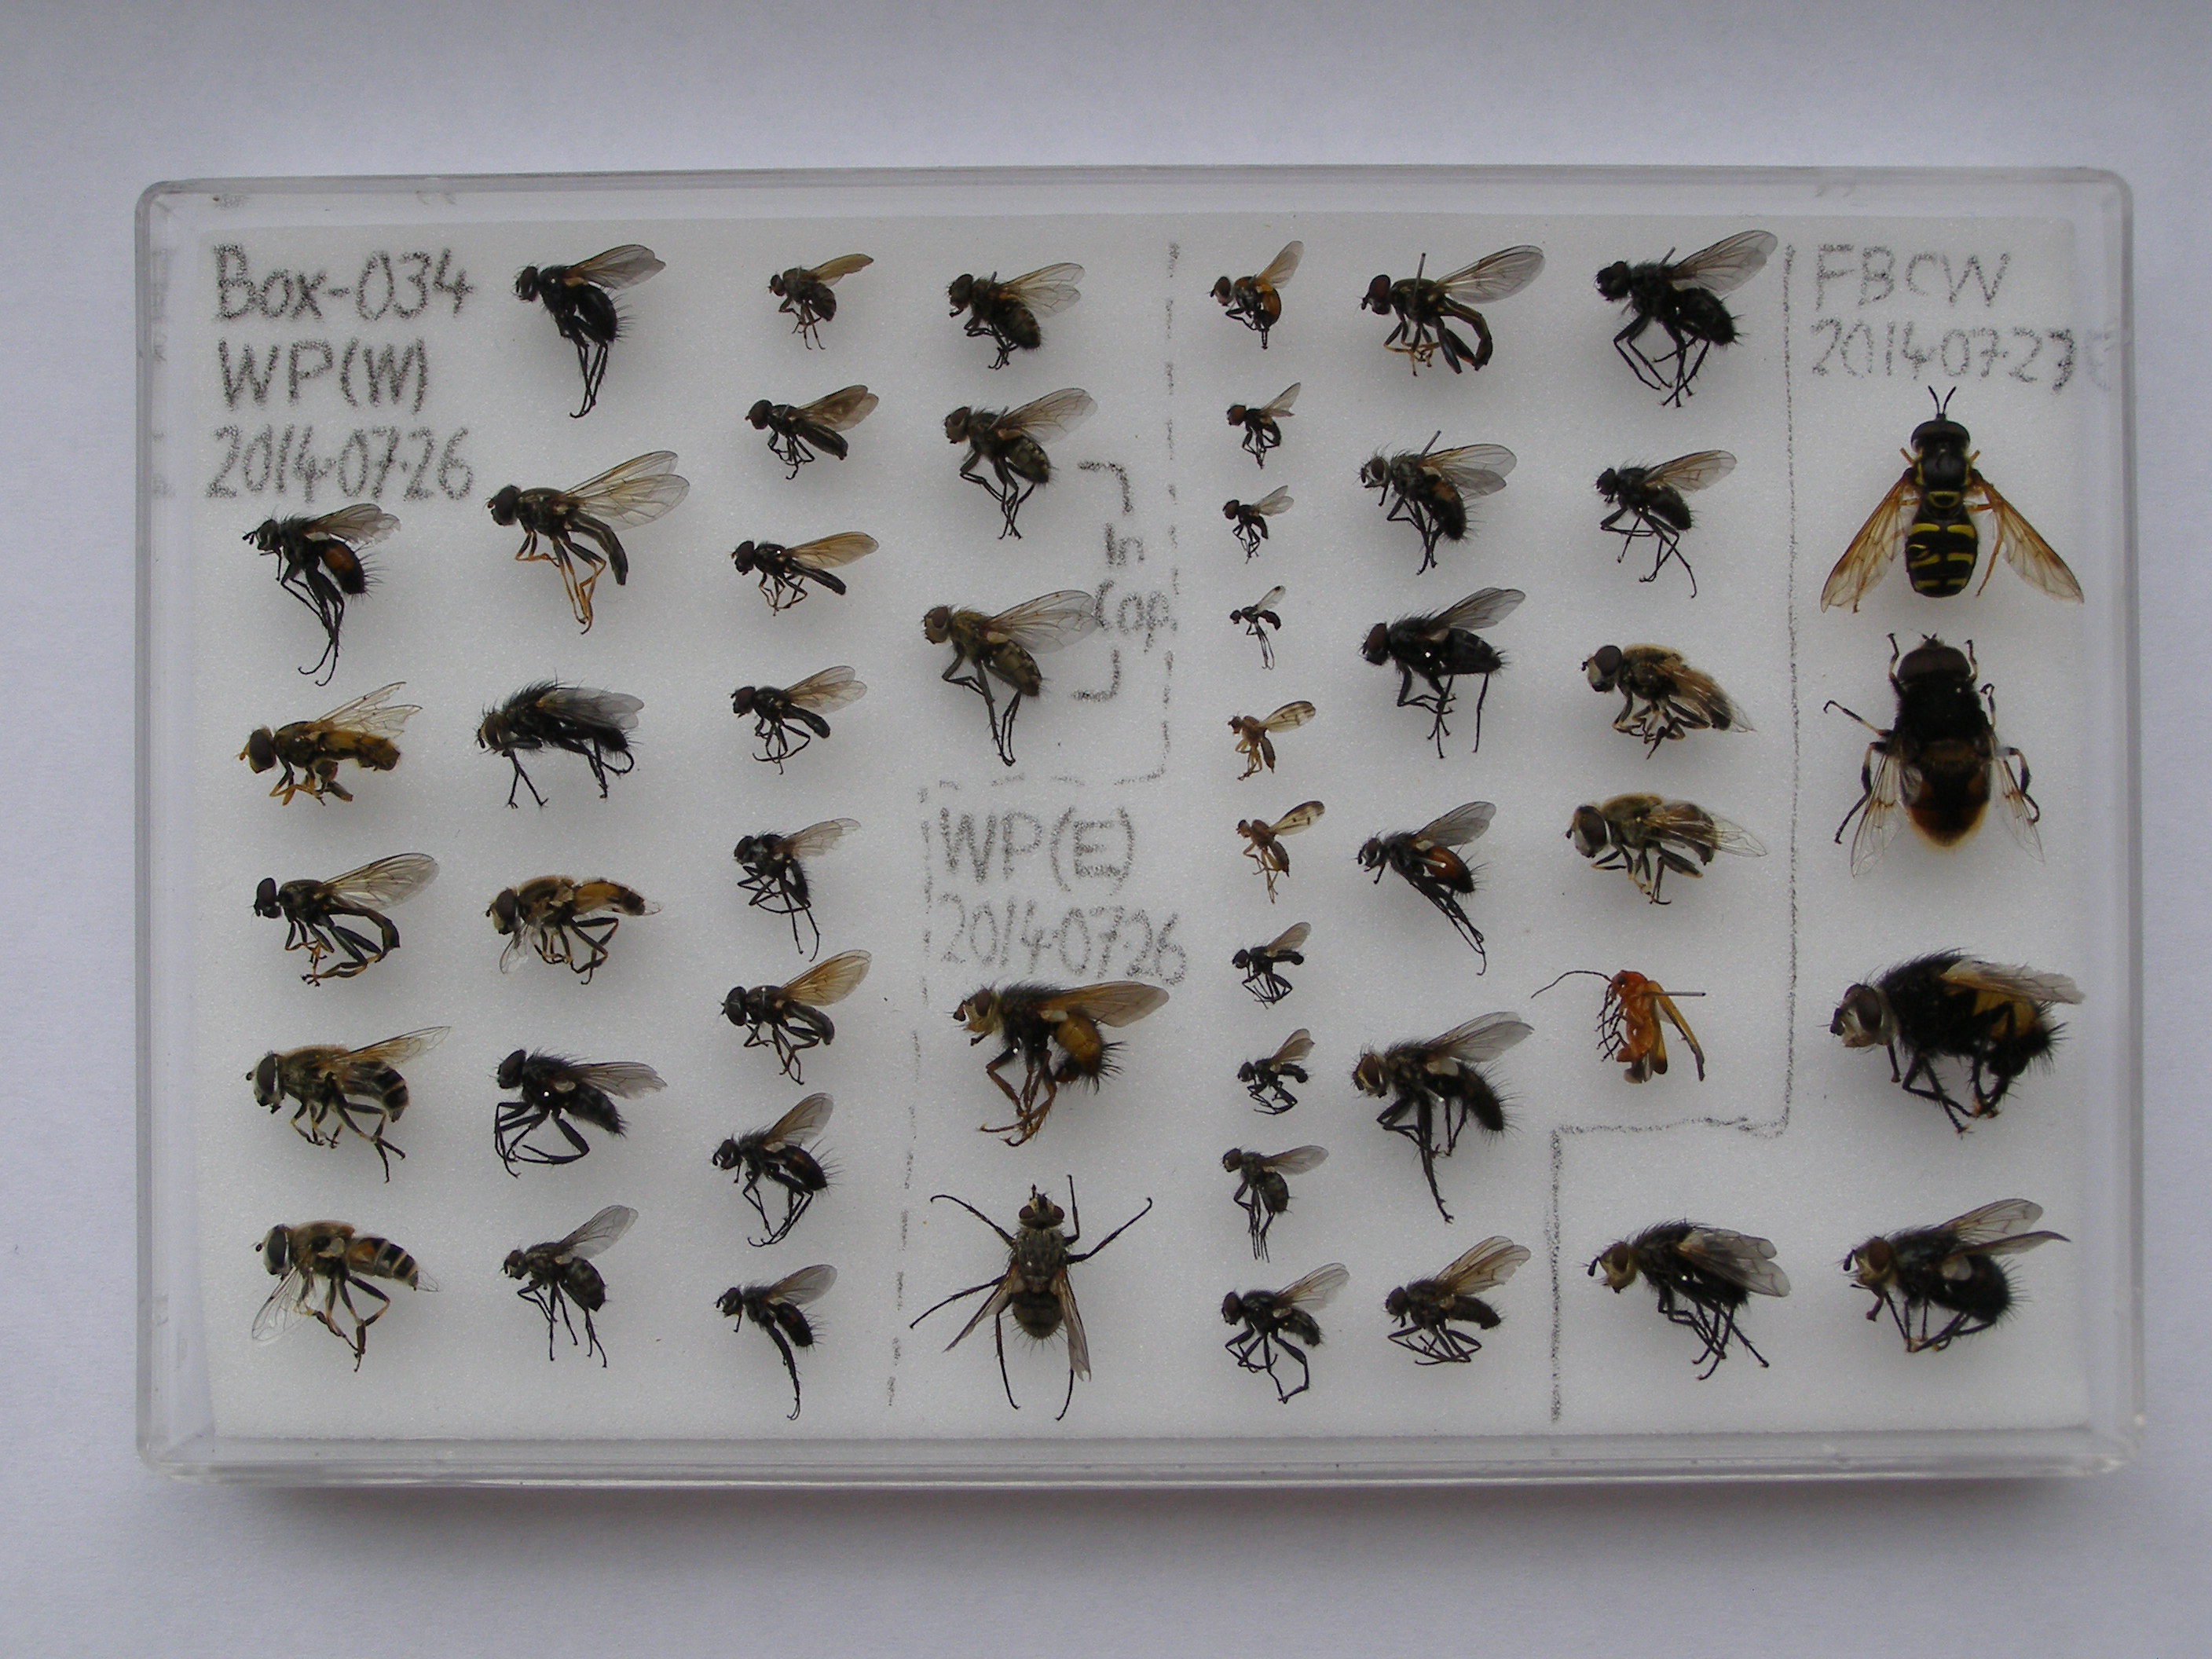 Box-034
WP(W)
2014·07·26
in
Cop
WP(E)
2014·07·26
FBCW
2014·07·27